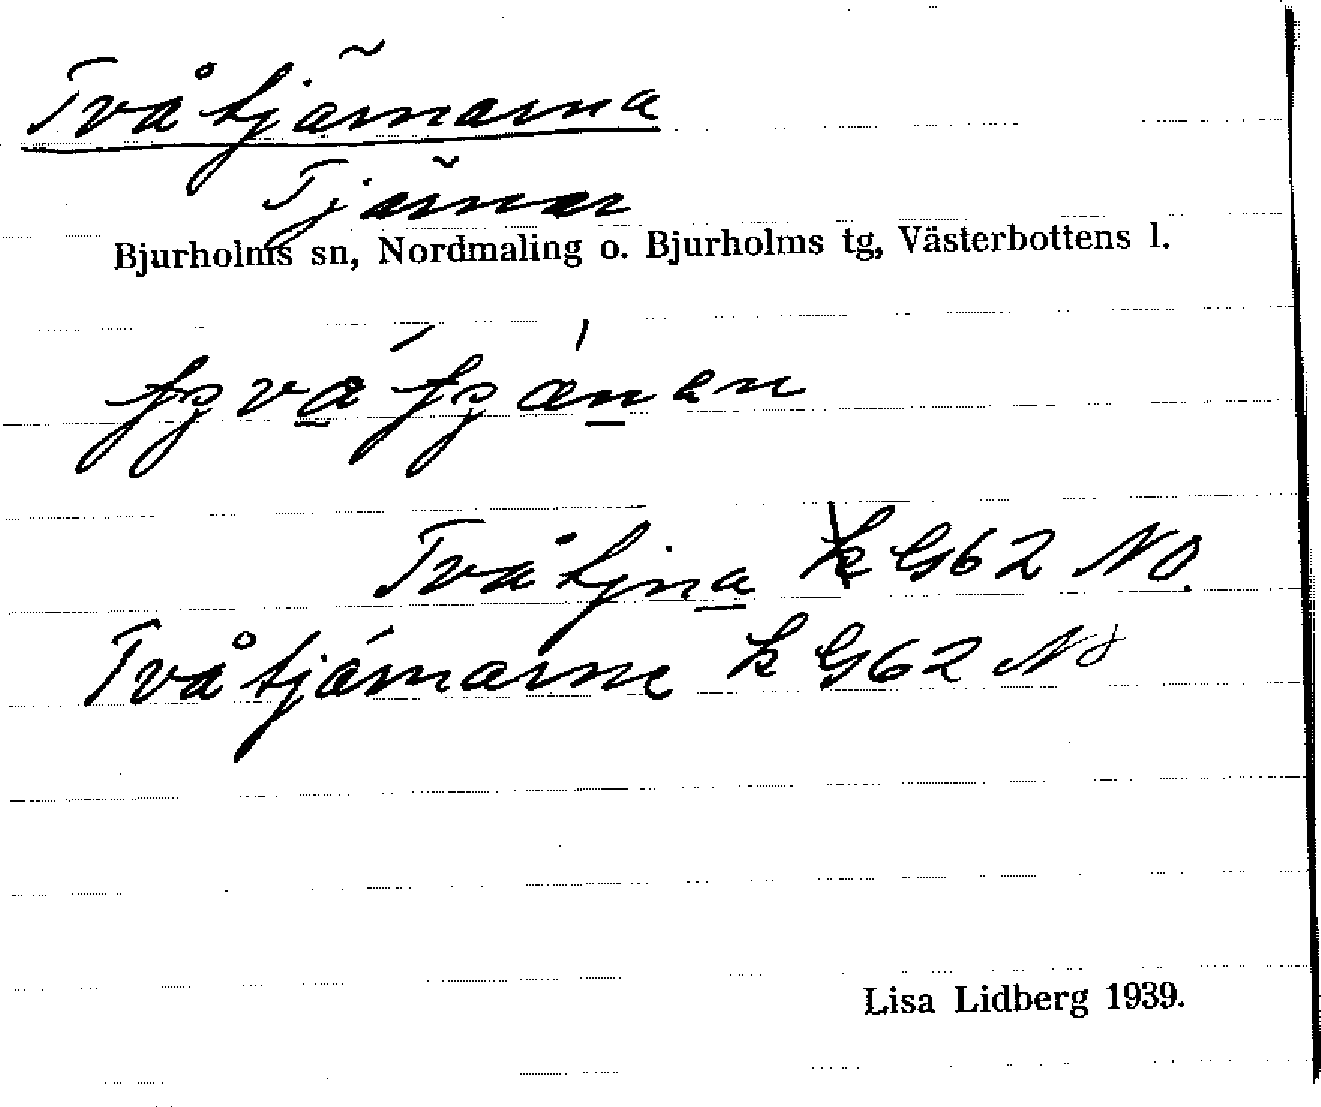 Tvåtjärnarna
Tjärnar
Bjurholms sn, Nordmaling o. Bjurholms tg, Västerbottens l.
Tvåtjna k G62 NO.
Tvåtjärnarne k G62 NO
Lisa Lidberg 1939.